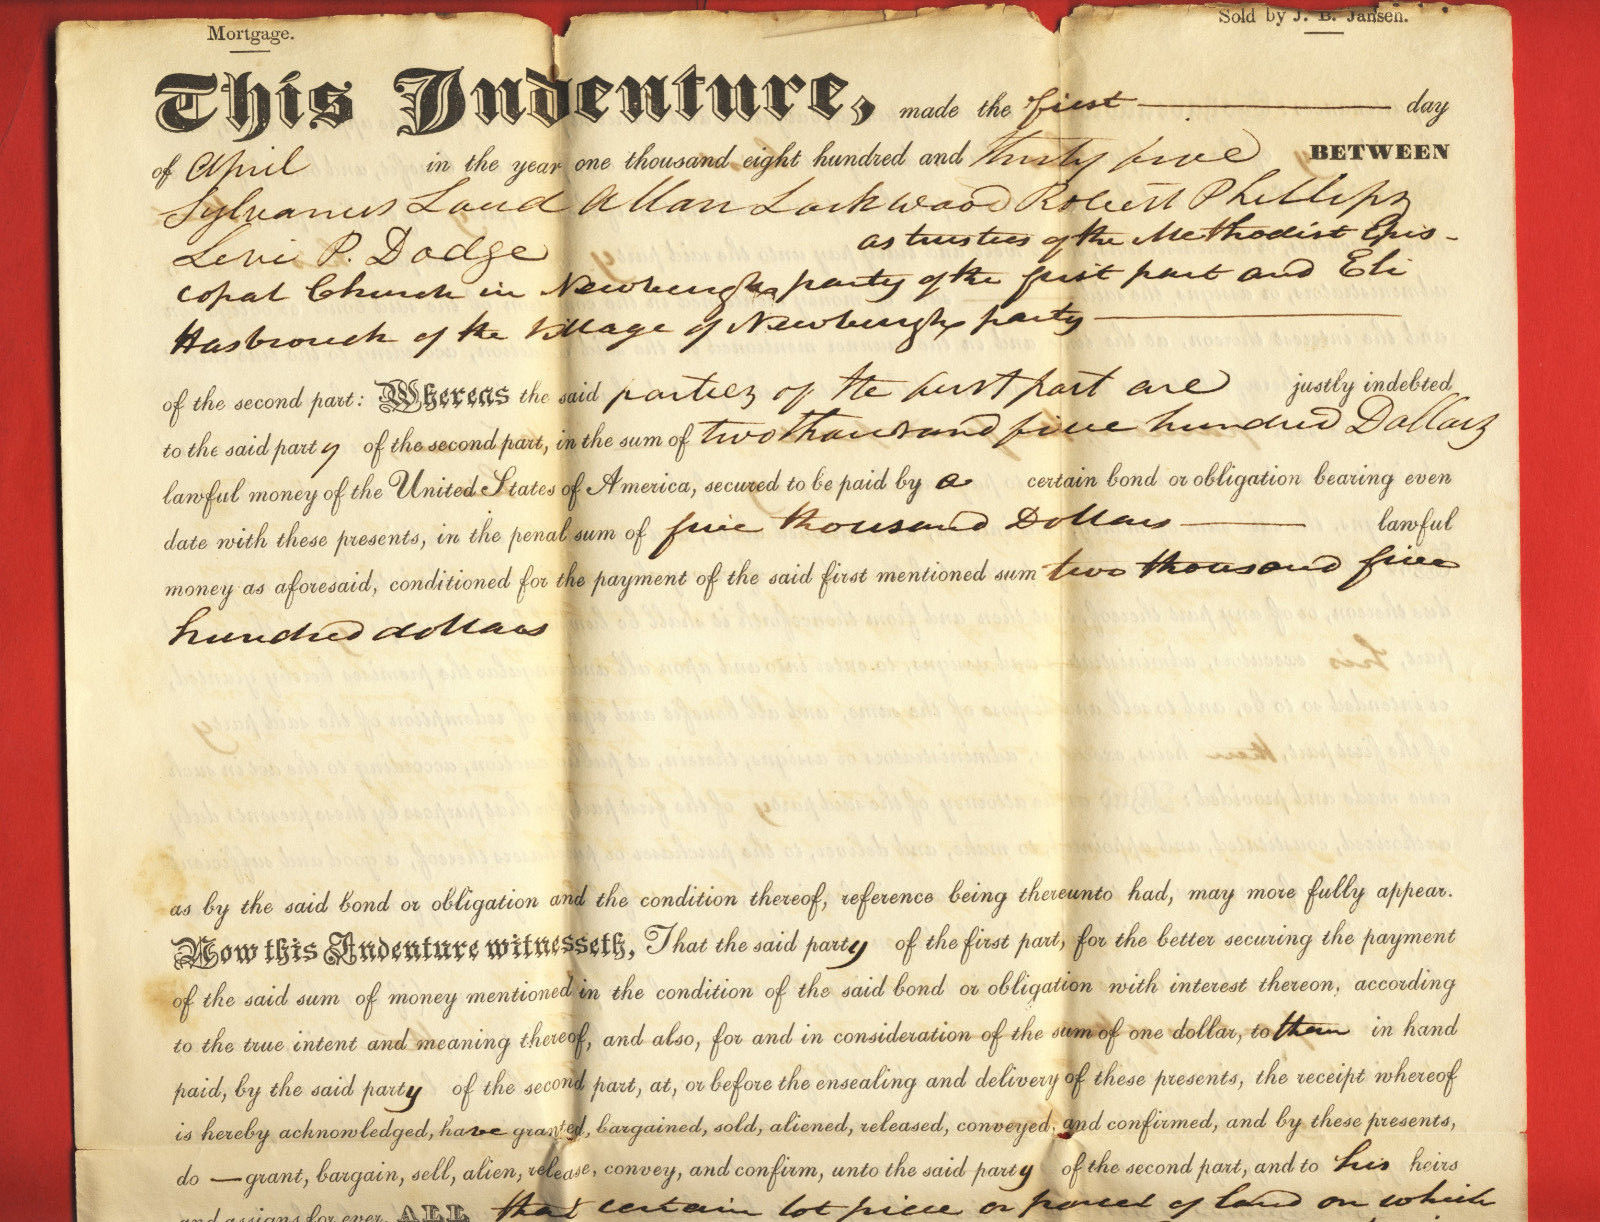 Mortgage.
Sold by J. B. Jansen.
This Indenture, made the first day
of April in the year one thousand eight hundred and thirty five BETWEEN
Sylvanus Laud Allan Lockwood Robert Phillips
Levi P. Dodge as trustees of the Methodist Epis-
copal Church in Newburgh party of the first part and Eli
Hasbrouck of the Village of Newburgh party
of the second part: Whereas the said parties of the first part are justly indebted
to the said party of the second part, in the sum of two thousand five hundred Dollars
lawful money of the United States of America, secured to be paid by a certain bond or obligation bearing even
date with these presents, in the penal sum of five thousand Dollars lawful
money as aforesaid, conditioned for the payment of the said first mentioned sum two thousand five
hundred dollars
as by the said bond or obligation and the condition thereof, reference being thereunto had, may more fully appear.
Now this Indenture witnesseth, That the said party of the first part, for the better securing the payment
of the said sum of money mentioned in the condition of the said bond or obligation with interest thereon, according
to the true intent and meaning thereof, and also, for and in consideration of the sum of one dollar, to them in hand
paid, by the said party of the second part, at, or before the ensealing and delivery of these presents, the receipt whereof
is hereby acknowledged, have granted, bargained, sold, aliened, released, conveyed, and confirmed, and by these presents,
do — grant, bargain, sell, alien, release, convey, and confirm, unto the said party of the second part, and to his heirs
and assigns for ever, ALL that certain lot piece or parcel of land on which